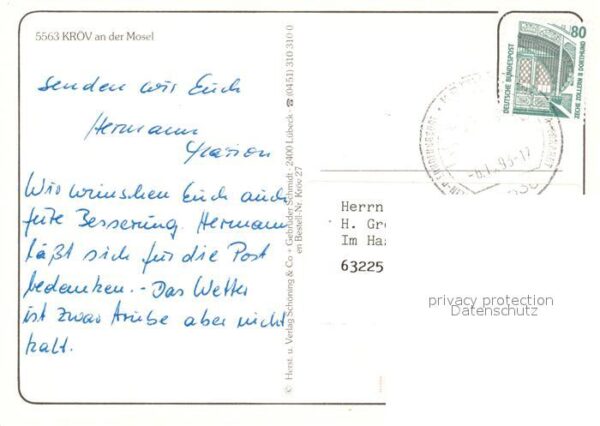 5563 KRÖV an der Mosel
senden wir Euch
Hermann
Marion
Wir wünschen Euch auch
gute Besserung. Hermann
läßt sich für die Post
bedanken. - Das Wetter
ist zwar trübe aber nicht
kalt.
© Herst. u. Verlag Schöning & Co + Gebrüder Schmidt · 2400 Lübeck · ☎ (0451) 310 310 0
en Bestell-Nr. Kröv 27
80
DEUTSCHE BUNDESPOST
ZECHE ZOLLERN II DORTMUND
-6.1.93-17
Herrn
H. Gr
Im Ha
63225
privacy protection
Datenschutz